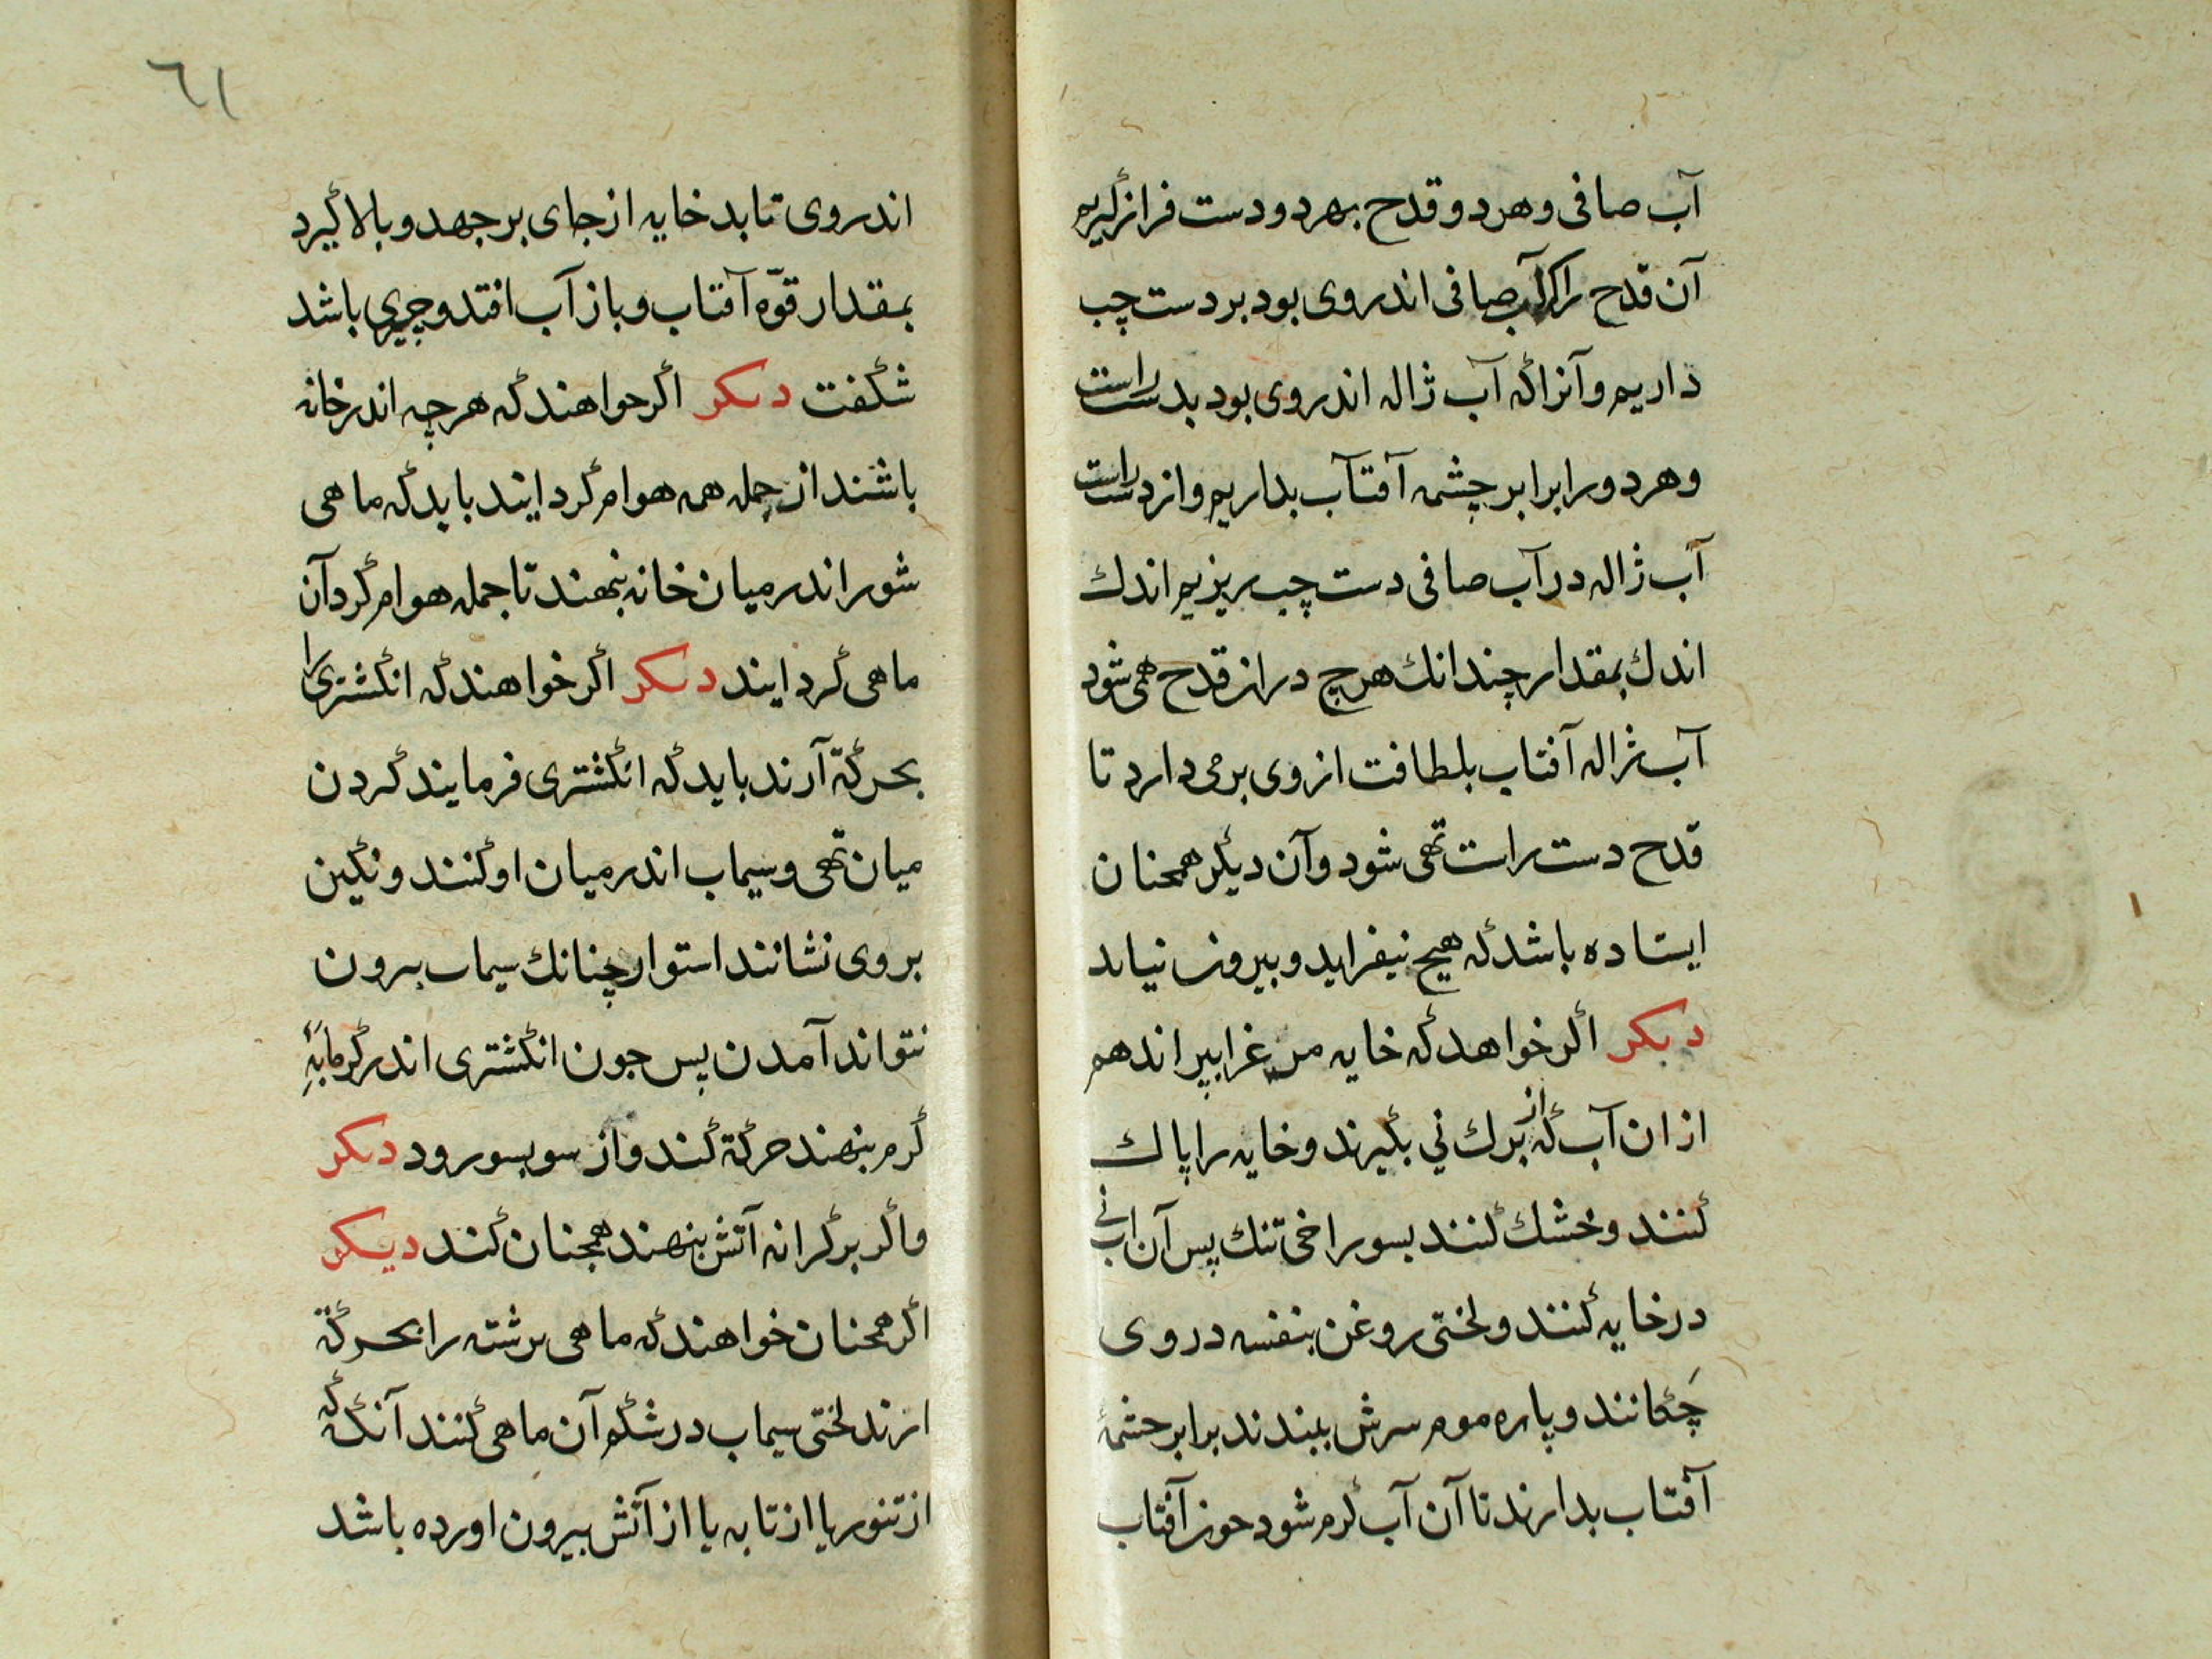 آب صافی و هر دو قدح بهر دو دست فراز گیریم
آن قدح را که آب صافی اندر وی بود بر دست چپ
داریم و آنرا که آب ژاله اندر وی بود بدست راست
و هر دو را برابر چشمه آفتاب بداریم و از دست راست
آب ژاله در آب صافی دست چپ ریزیم اندك
اندك بمقدار چندانك هرچ دران قدح همی شود
آب ژاله آفتاب بلطافت از وی برمی دارد تا
قدح دست راست تهی شود و آن دیگر همچنان
ایستاده باشد که هیچ نیفزاید و بیرون نیاید
دیکر اگر خواهد که خایه مرغ را بپراند هم
ازان آب که از برك نی بگیرند و خایه را پاك
کنند و خشك کنند بسوراخی تنك پس آن آب نی
در خایه کنند و لختی روغن بنفسه در وی
چَکانند و پاره موم سرش ببندند برابر حشمهٔ
آفتاب بدارند تا آن آب گرم شود جون آفتاب
٦١
اندر وی تابد خایه از جای برجهد و بالا گیرد
بمقدار قوّه آفتاب و باز آب افتد و چیزی باشد
شگفت دیکر اگر خواهند که هرچه اندر خانه
باشند از جمله همه هوام گرد ایند باید که ماهی
شور اندر میان خانه بنهند تا جمله هوام گرد آن
ماهی گرد ایند دیکر اگر خواهند که انگشتری را
بحرکة آرند باید که انگشتری فرمایند کردن
میان تهی و سیماب اندر میان او کنند و نگین
بر وی نشانند استوار چنانك سیماب برون
نتواند آمدن پس جون انگشتری اندر گرمابهٔ
گرم بنهند حرکة کند و از سو بسو رود دیکر
و اگر بر کرانه آتش بنهند همچنان کند دیکر
اگر همچنان خواهند که ماهی برشته را بحرکة
ارند لختی سیماب در شکم آن ماهی کنند آنگه که
از تنور یا از تابه یا از آتش بیرون اورده باشد